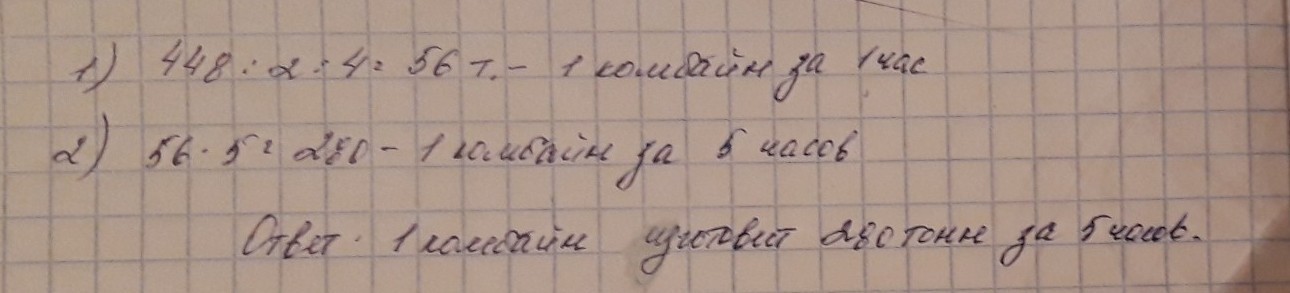 1) 448 : 2 : 4 = 56 т. - 1 комбайн за 1 час
2) 56 · 5 = 280 - 1 комбайн за 5 часов
Ответ. 1 комбайн изготовит 280 тонн за 5 часов.